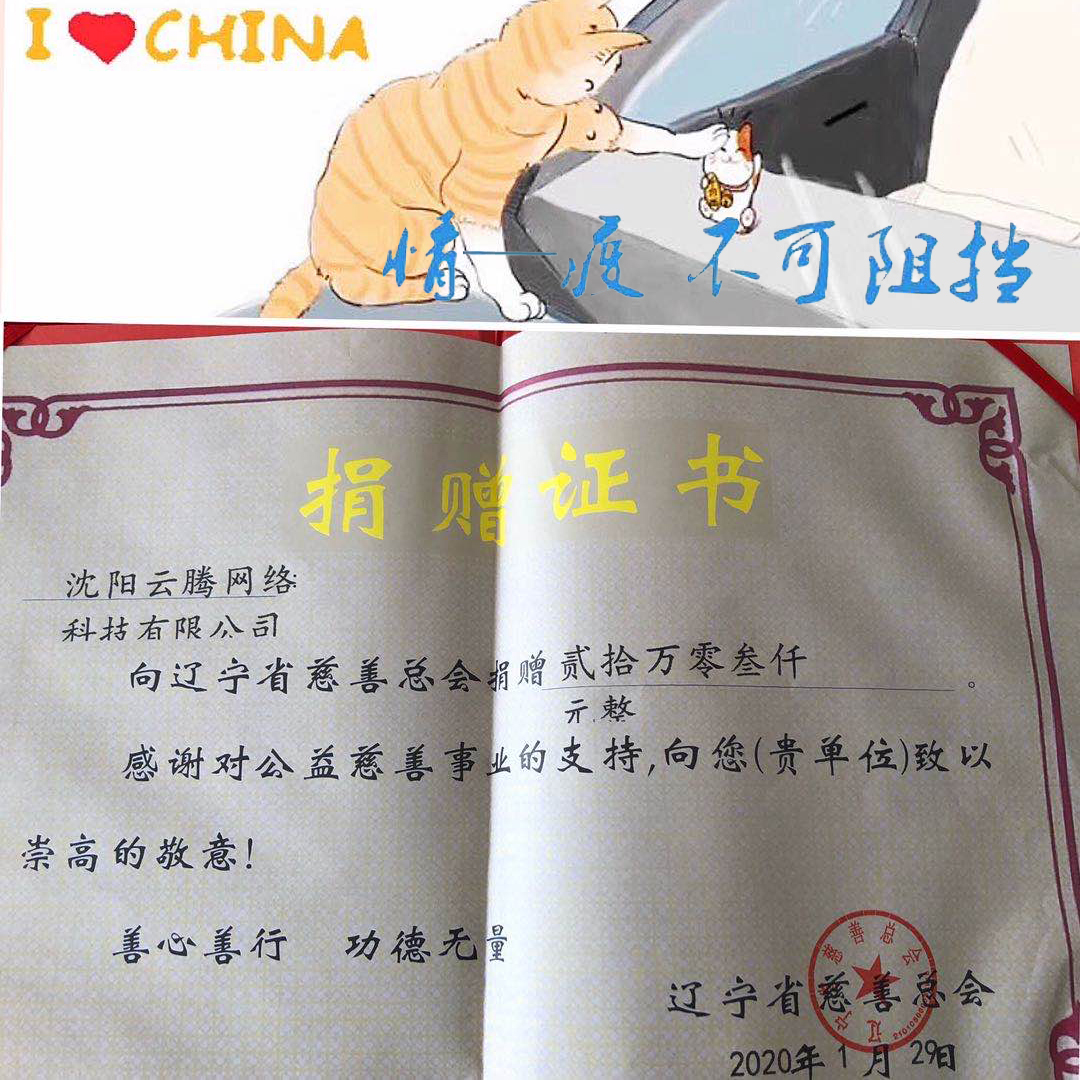 I❤CHINA
情一疫 不可阻挡
捐赠证书
沈阳云腾网络
科技有限公司
向辽宁省慈善总会捐赠 贰拾万零叁仟
元整
。
感谢对公益慈善事业的支持,向您(贵单位)致以
崇高的敬意!
善心善行 功德无量
辽宁省慈善总会
辽宁省慈善总会
2020年1月29日